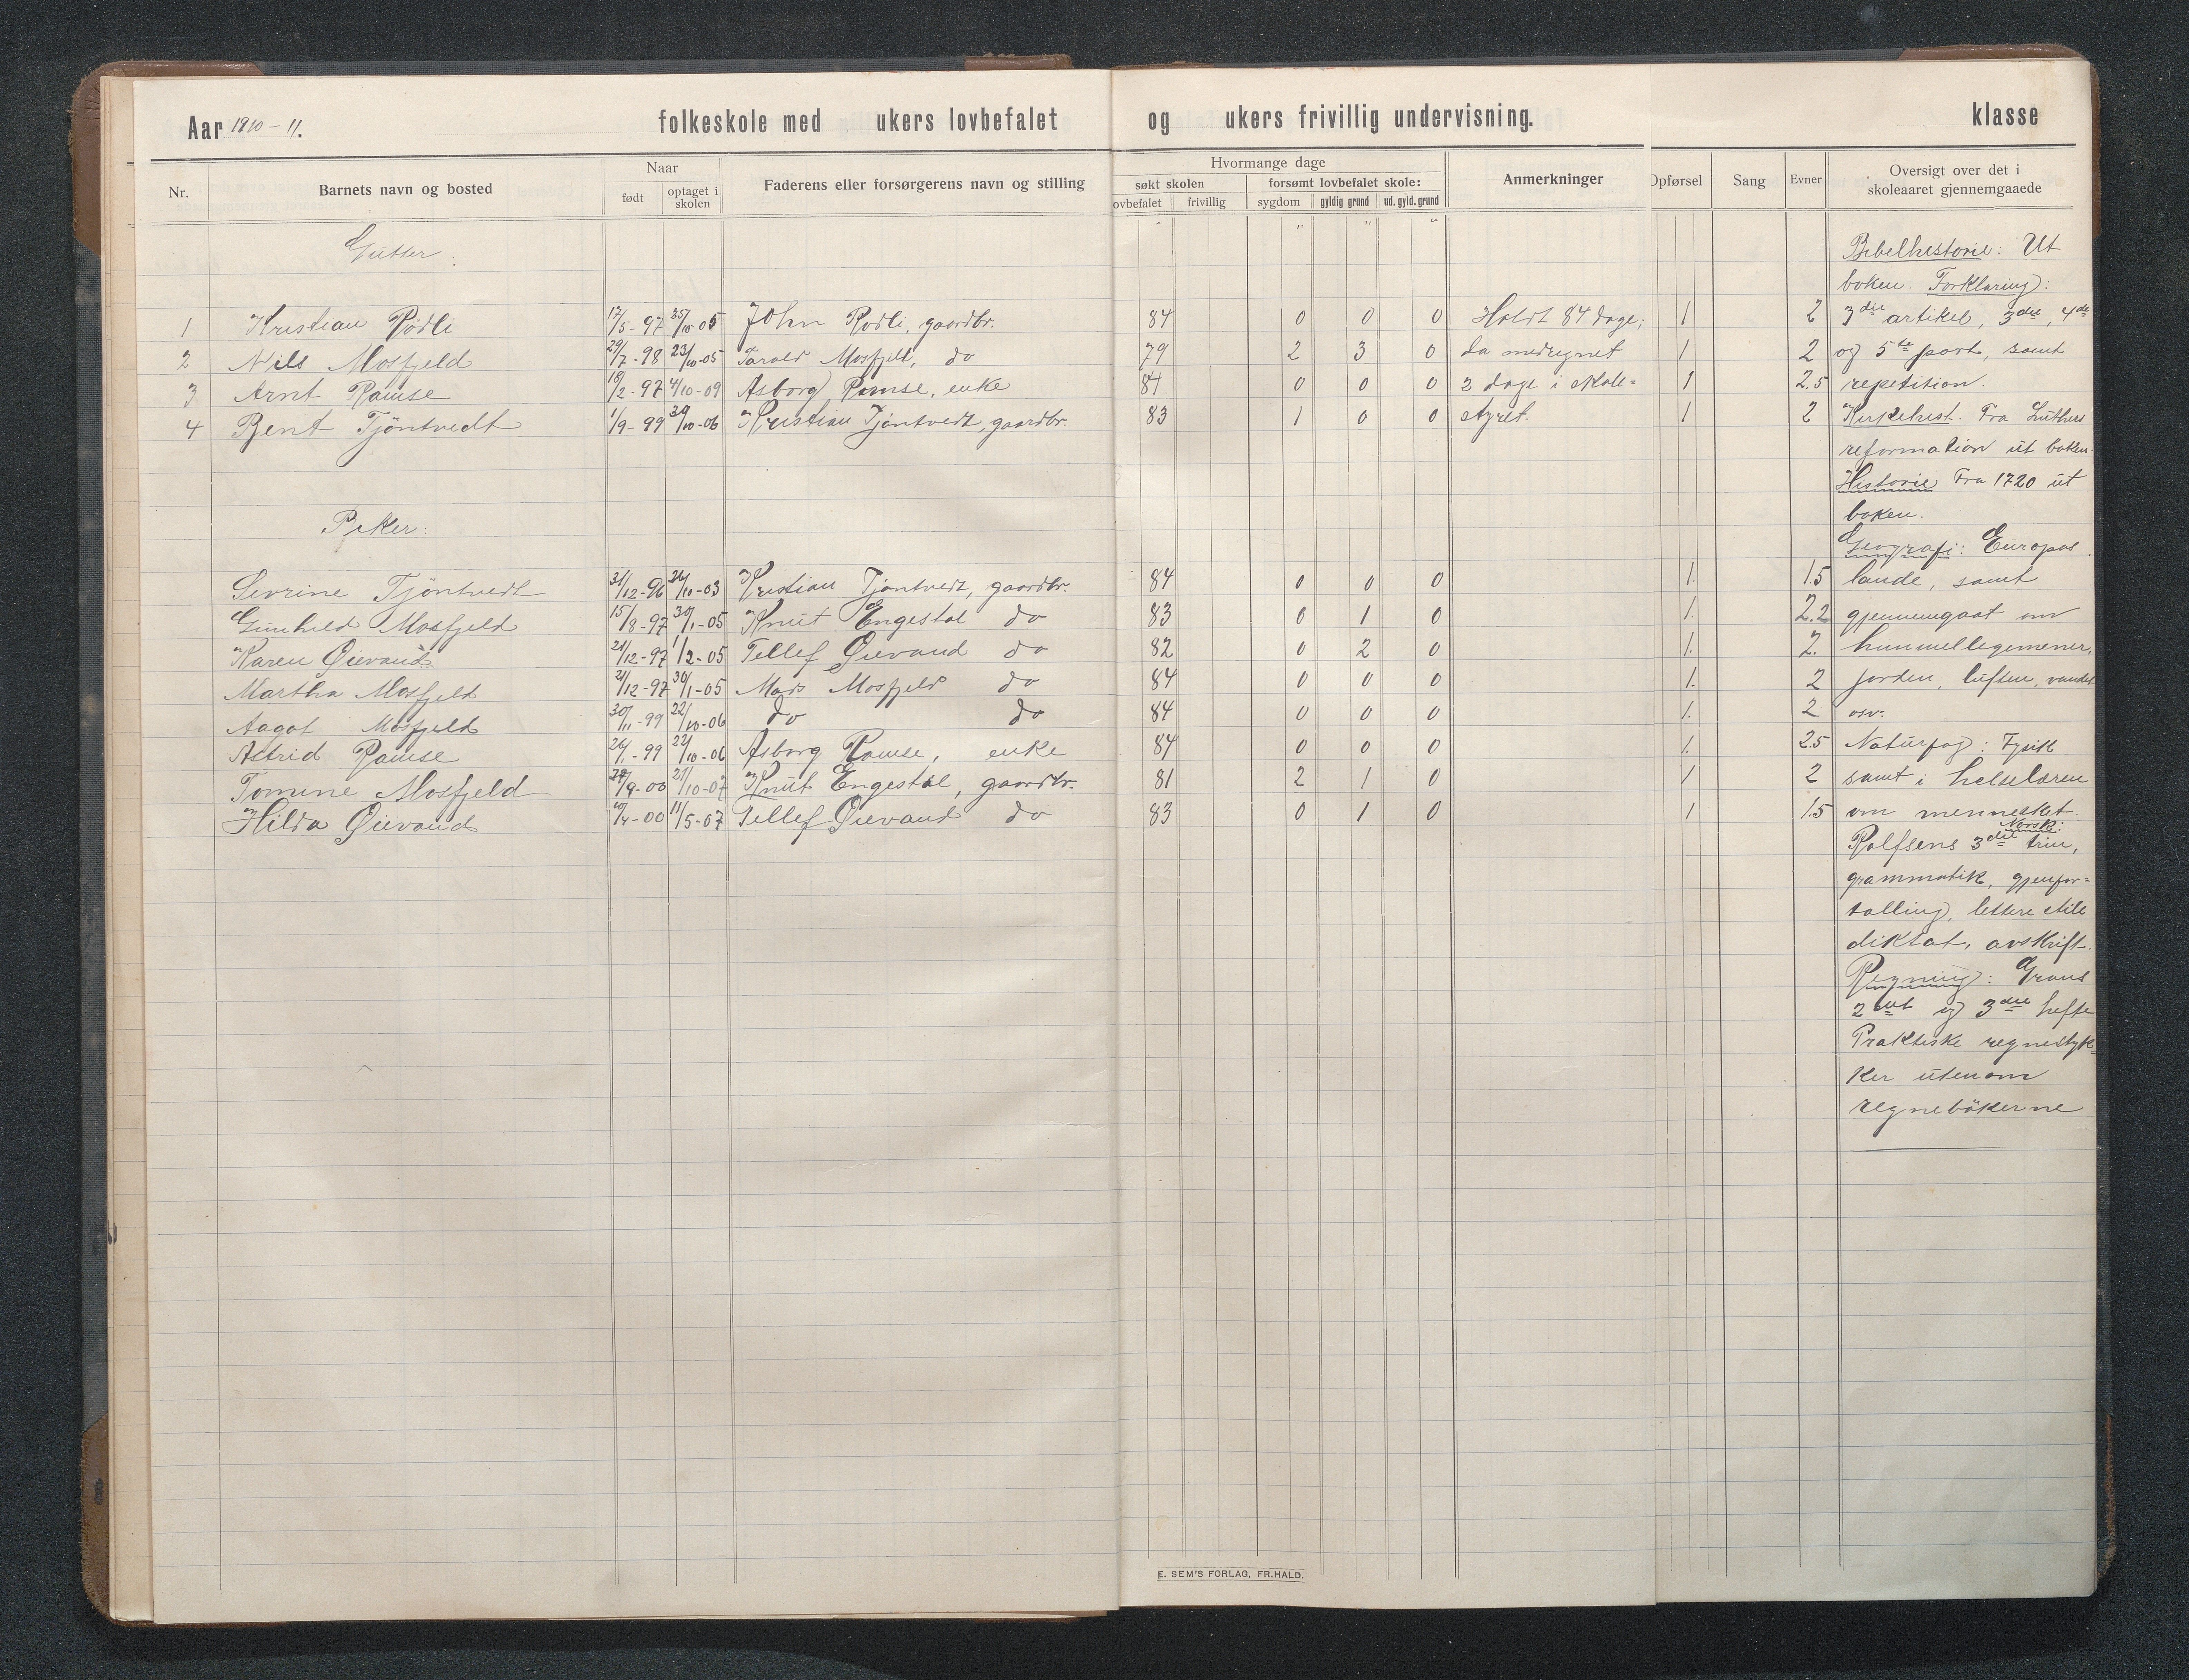 Aar 1910-11. folkeskole med ukers lovbefalet og ukers frivillig undervisning. klasse
Nr. Barnets navn og bosted Naar født optaget i skolen Faderens eller forsørgerens navn og stilling Hvormange dage søkt skolen ovbefalet frivillig forsømt lovbefalet skole: sygdom gyldig grund ud. gyld. grund Anmerkninger Opførsel Sang Evner Oversigt over det i skoleaaret gjennemgaaede
Gutter:
1 Kristian Rödli 17/5-97 25/10-05 John Rödli, gaardbr. 84 0 0 0 Holdt 84 dage; 1 2
2 Nils Mosfjeld 29/7-98 23/10-05 Tarald Mosfjeld, do 79 2 3 0 da medregnet 1 2
3 Arnt Ramse 18/2-97 4/10-09 Asborg Ramse, enke 84 0 0 0 2 dage i skole= 1 2.5
4 Bent Tjöntvedt 1/9-99 30/10-06 Kristian Tjöntvedt, gaardbr. 83 1 0 0 styret. 1 2
Piker:
Sevrine Tjöntvedt 31/12-96 26/10-03 Kristian Tjöntvedt, gaardbr. 84 0 0 0 1. 1.5
Gunhild Mosfjeld 15/8-97 30/1-05 Knut Engestöl do 83 0 1 0 1. 2.2
Karen Øievand 21/12-97 1/2-05 Tellef Øievand do 82 0 2 0 1. 2.
Martha Mosfjeld 21/12-97 30/1-05 Mads Mosfjeld do 84 0 0 0 1. 2
Aagot Mosfjeld 30/11-99 22/10-06 do do 84 0 0 0 1. 2
Astrid Ramse 26/1-99 22/10-06 Asborg Ramse, enke 84 0 0 0 1. 2.5
Tomine Mosfjeld /9-00 21/10-07 Knut Engestöl, gaardbr. 81 2 1 0 1 2
Hilda Øievand /4-00 11/5-07 Tellef Øievand do 83 0 1 0 1 1.5
Bibelhistorie: Ut
boken. Forklaring:
3die artikel, 3die, 4de
og 5te part, samt
repetition.
Kirkehist. Fra Luthers
reformation ut boken.
Historie Fra 1720 ut
boken.
Geografi: Europas
lande, samt
gjennemgaat om
himmellegemener,
jorden, luften, vandet
osv.
Naturfag: Fysik
samt i helselæren
om mennesket.
Norsk:
Rolfsens 3die trin,
grammatik, gjenfor=
tælling, lettere stile
diktat, avskrift.
Regning:
2det og 3die hefte
Praktiske regnestyk=
ker utenom
regnebökerne
E. SEM'S FORLAG, FR.HALD.